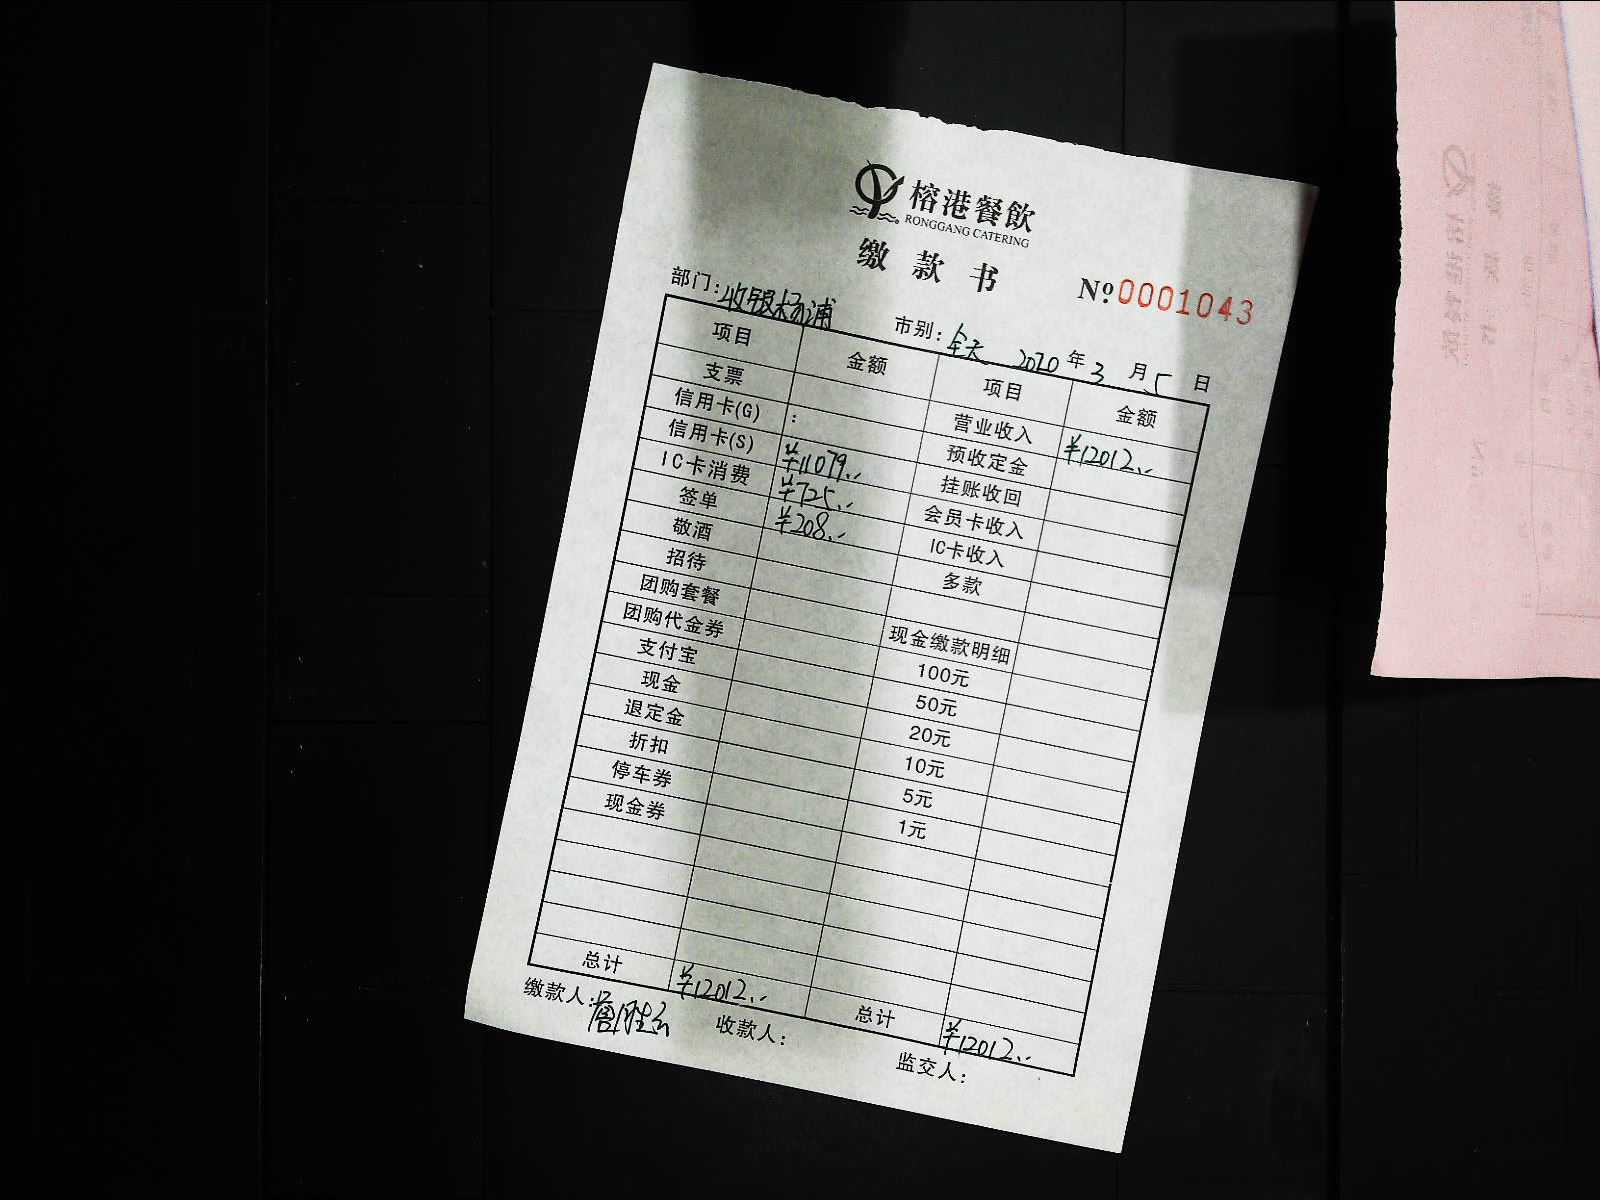 榕港餐飲
RONGGANG CATERING
缴款书
Nº 0001043
部门：收银杨浦 市别：全天 2020年3月5日
项目 金额 项目 金额
支票 营业收入 ¥12012..
信用卡(G) : 预收定金
信用卡(S) ¥11079.. 挂账收回
IC卡消费 ¥725.. 会员卡收入
签单 ¥208.. IC卡收入
敬酒 多款
招待
团购套餐 现金缴款明细
团购代金券 100元
支付宝 50元
现金 20元
退定金 10元
折扣 5元
停车券 1元
现金券
总计 ¥12012.. 总计 ¥12012..
缴款人： 收款人： 监交人：